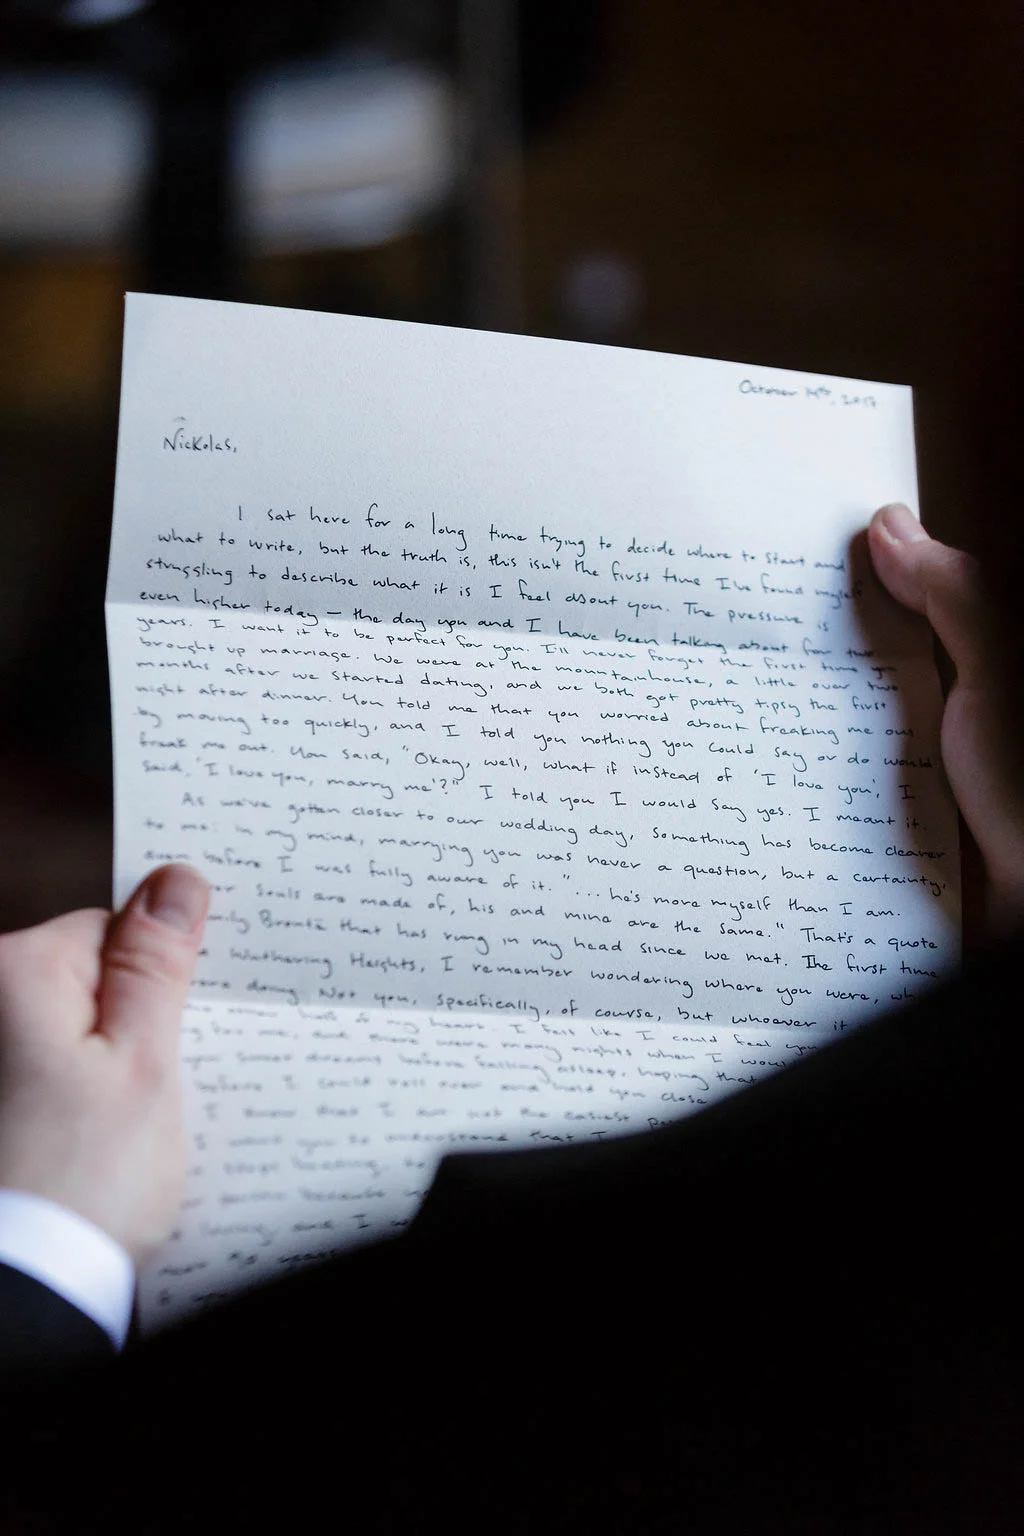 October 14th, 2017
Nickolas,
I sat here for a long time trying to decide where to start and
what to write, but the truth is, this isn't the first time I've found myself
struggling to describe what it is I feel about you. The pressure is
even higher today — the day you and I have been talking about for two
years. I want it to be perfect for you. I'll never forget the first time you
brought up marriage. We were at the mountainhouse, a little over two
months after we started dating, and we both got pretty tipsy the first
night after dinner. You told me that you worried about freaking me out
by moving too quickly, and I told you nothing you could say or do would
freak me out. You said, "Okay, well, what if instead of 'I love you', I
said, 'I love you, marry me'?" I told you I would say yes. I meant it.
As we've gotten closer to our wedding day, something has become clearer
to me: in my mind, marrying you was never a question, but a certainty,
even before I was fully aware of it. "...he's more myself than I am.
our souls are made of, his and mine are the same." That's a quote
Emily Brontë that has rung in my head since we met. The first time
Wuthering Heights, I remember wondering where you were, wh
were doing. Not you, specifically, of course, but whoever it
other half of my heart. I felt like I could feel you
for me, and there were many nights when I woul
you sweet dreams before falling asleep, hoping that
before I could roll over and hold you close
I know that I am not the easiest pe
I want you to understand that I
because
and I w
years